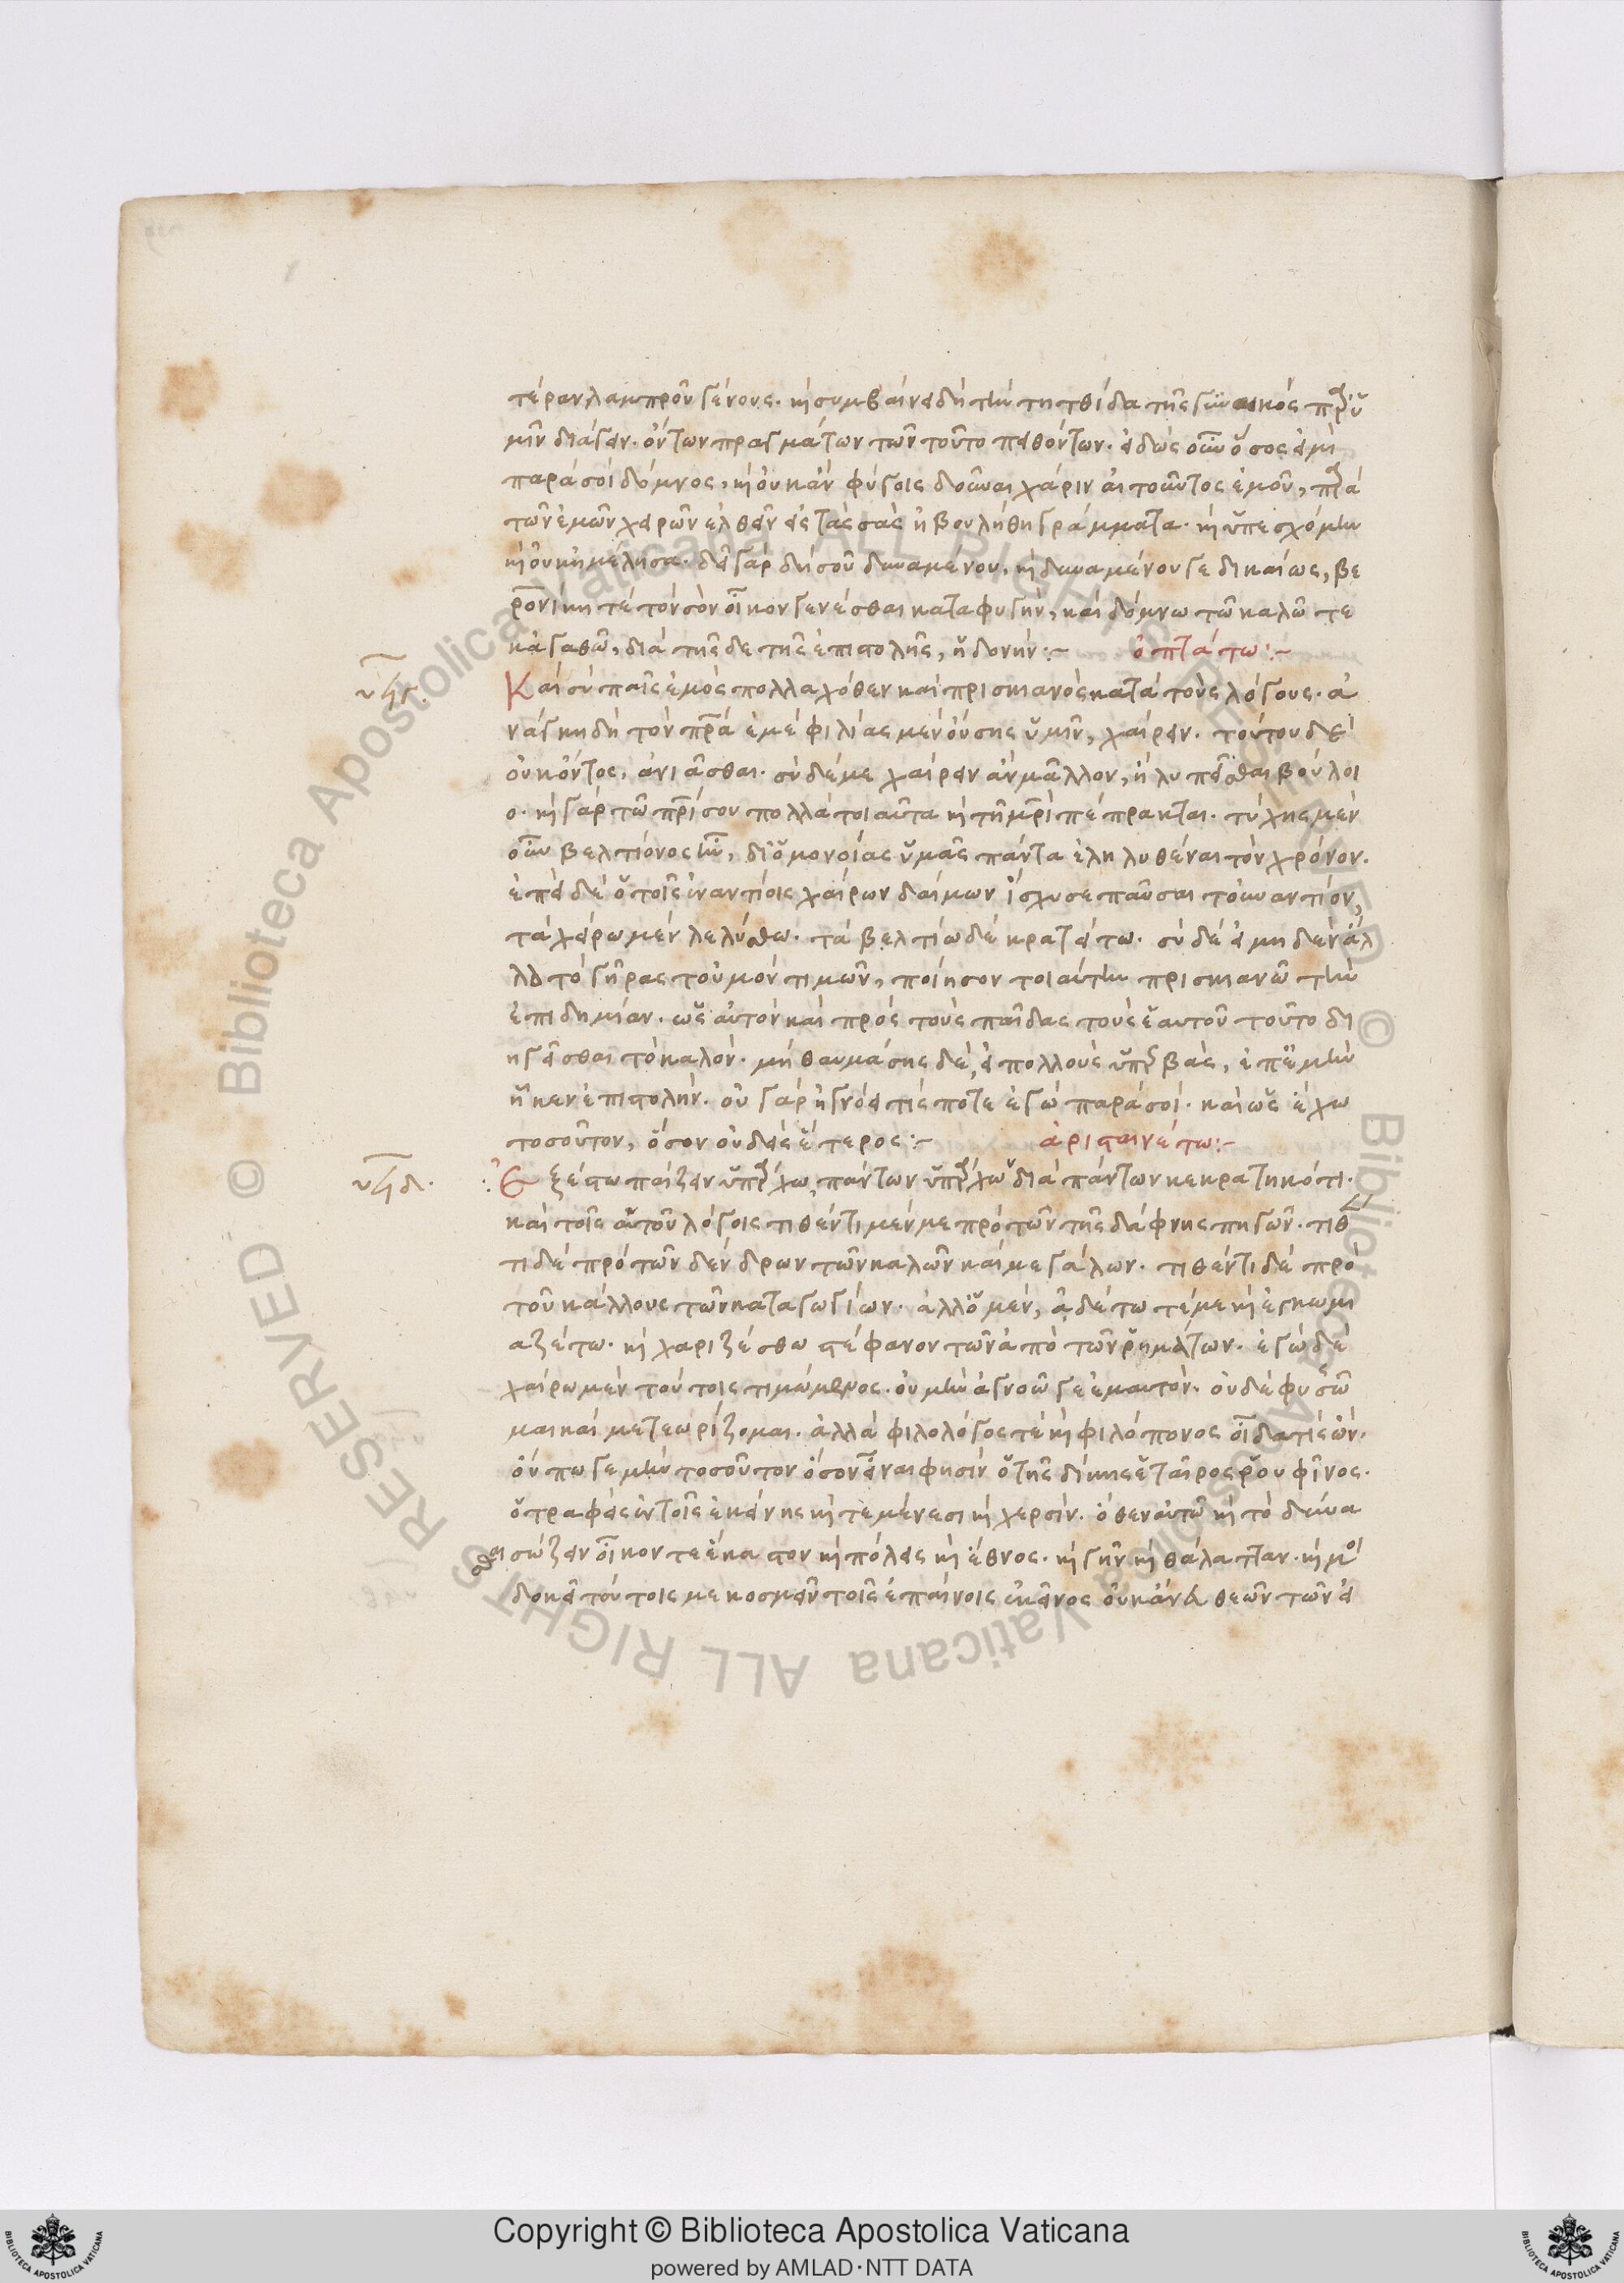 τέραν λαμπροῦ γένους. καὶ συμβαίνει δὴ τὴν τητθίδα τῆς γυναικὸς παρ' ὑ
μῖν διάγειν. ὄντων πραγμάτων τῶν τοῦτο πειθόντων. εἰδὼς οὖν ὅσος εἰμὶ
παρὰ σοὶ δόμνος, καὶ οὐκ ἂν φύγοις δοῦναι χάριν αἰτοῦντος ἐμοῦ, παρὰ
τῶν ἐμῶν χειρῶν ἐλθεῖν εἰς τὰς σὰς ἠβουλήθη γράμματα. καὶ ὑπεσχόμην
καὶ οὐκ ἠμέλησα. δεῖ γὰρ δὴ σοῦ δυναμένου, καὶ δυναμένου γε δικαίως, βε
ρονίκη τε τὸν σὸν οἶκον γενέσθαι καταφυγὴν, καὶ δόμνω τῶ καλῶ τε
κἀγαθῶ, διὰ τῆς δε τῆς ἐπιστολῆς, ἡδονήν:– ὀπτάτω:–
Καὶ σὺ παῖς ἐμὸς πολλαχόθεν καὶ πρισκιανὸς κατὰ τοὺς λόγους. ἀ
νάγκη δὴ τὸν πατέρα ἐμὲ φιλίας μὲν οὔσης ὑμῖν, χαίρειν. τούτου δὲ
οὐκ ὄντος, ἀνιᾶσθαι. σὺ δέ με χαίρειν ἂν μᾶλλον, ἢ λυπεῖσθαι βούλοι
ο. καὶ γὰρ τῶ πατρί σου πολλὰ τοιαῦτα καὶ τῆ μητρὶ πέπρακται. τύχης μὲν
οὖν βελτίονος ἦν, δι' ὁμονοίας ὑμᾶς πάντα ἐληλυθέναι τὸν χρόνον.
ἐπεὶ δὲ ὁ τοῖς ἐναντίοις χαίρων δαίμων ἴσχυσε παῦσαι τὸ ἐναντίον,
τὰ χείρω μὲν λελύσθω. τὰ βελτίω δὲ κρατείτω. σὺ δὲ εἰ μηδὲν ἄλ
λο τὸ γῆρας τοὐμὸν τιμῶν, ποίησον τοιαύτην πρισκιανῶ τὴν
ἐπιδημίαν. ὡς αὐτὸν καὶ πρὸς τοὺς παῖδας τοὺς ἑαυτοῦ τοῦτο δι
ηγεῖσθαι τὸ καλόν. μὴ θαυμάσης δὲ, εἰ πολλοὺς ὑπερβὰς, ἐπ' ἐμὴν
ἧκεν ἐπιστολήν. οὐ γὰρ ἠγνόει τίς ποτε ἐγὼ παρὰ σοί. καὶ ὡς ἔχω
τοσοῦτον, ὅσον οὐδεὶς ἕτερος:– ἀρισταινέτω:–
υξγ.
Ἐξέστω παίζειν ὑπάρχω, πάντων ὑπάρχων διὰ πάντων κεκρατηκότι.
υξδ.
καὶ τοῖς αὑτοῦ λόγοις τιθέντι μέν με πρὸ τῶν τῆς δάφνης πηγῶν. τιθέν
τι δὲ πρὸ τῶν δένδρων τῶν καλῶν καὶ μεγάλων. τιθέντι δὲ πρὸ
τοῦ κάλλους τῶν καταγωγίων. ἀλλ' ὁ μὲν, ἀδέτω τέ με καὶ ἐγκωμι
αζέτω. καὶ χαριζέσθω στέφανον τῶν ἀπὸ τῶν ῥημάτων. ἐγὼ δὲ
χαίρω μὲν τούτοις τιμώμενος. οὐ μὴν ἀγνοῶ γε ἐμαυτόν. οὐδὲ φυσῶ
μαι καὶ μετεωρίζομαι. ἀλλὰ φιλολόγος τέ καὶ φιλόπονος οἶδα τίς ὤν.
οὔπω γε μὴν τοσοῦτον ὅσον εἶναι φησὶν ὁ τῆς δίκης ἑταῖρος ῥουφῖνος.
ὁ τραφεὶς ἐν τοῖς ἐκείνης καὶ τεμένεσι καὶ χερσίν. ὅθεν αὐτῶ καὶ τὸ δύνα
σθαι σώζειν οἶκον τε ἕκαστον καὶ πόλεις καὶ ἔθνος. καὶ γῆν καὶ θάλατταν. καί μοι
δοκεῖ τούτοις με κοσμεῖν τοῖς ἐπαίνοις ἐκεῖνος οὐκ ἄνευ θεῶν τῶν εἰ
Copyright © Biblioteca Apostolica Vaticana
powered by AMLAD·NTT DATA